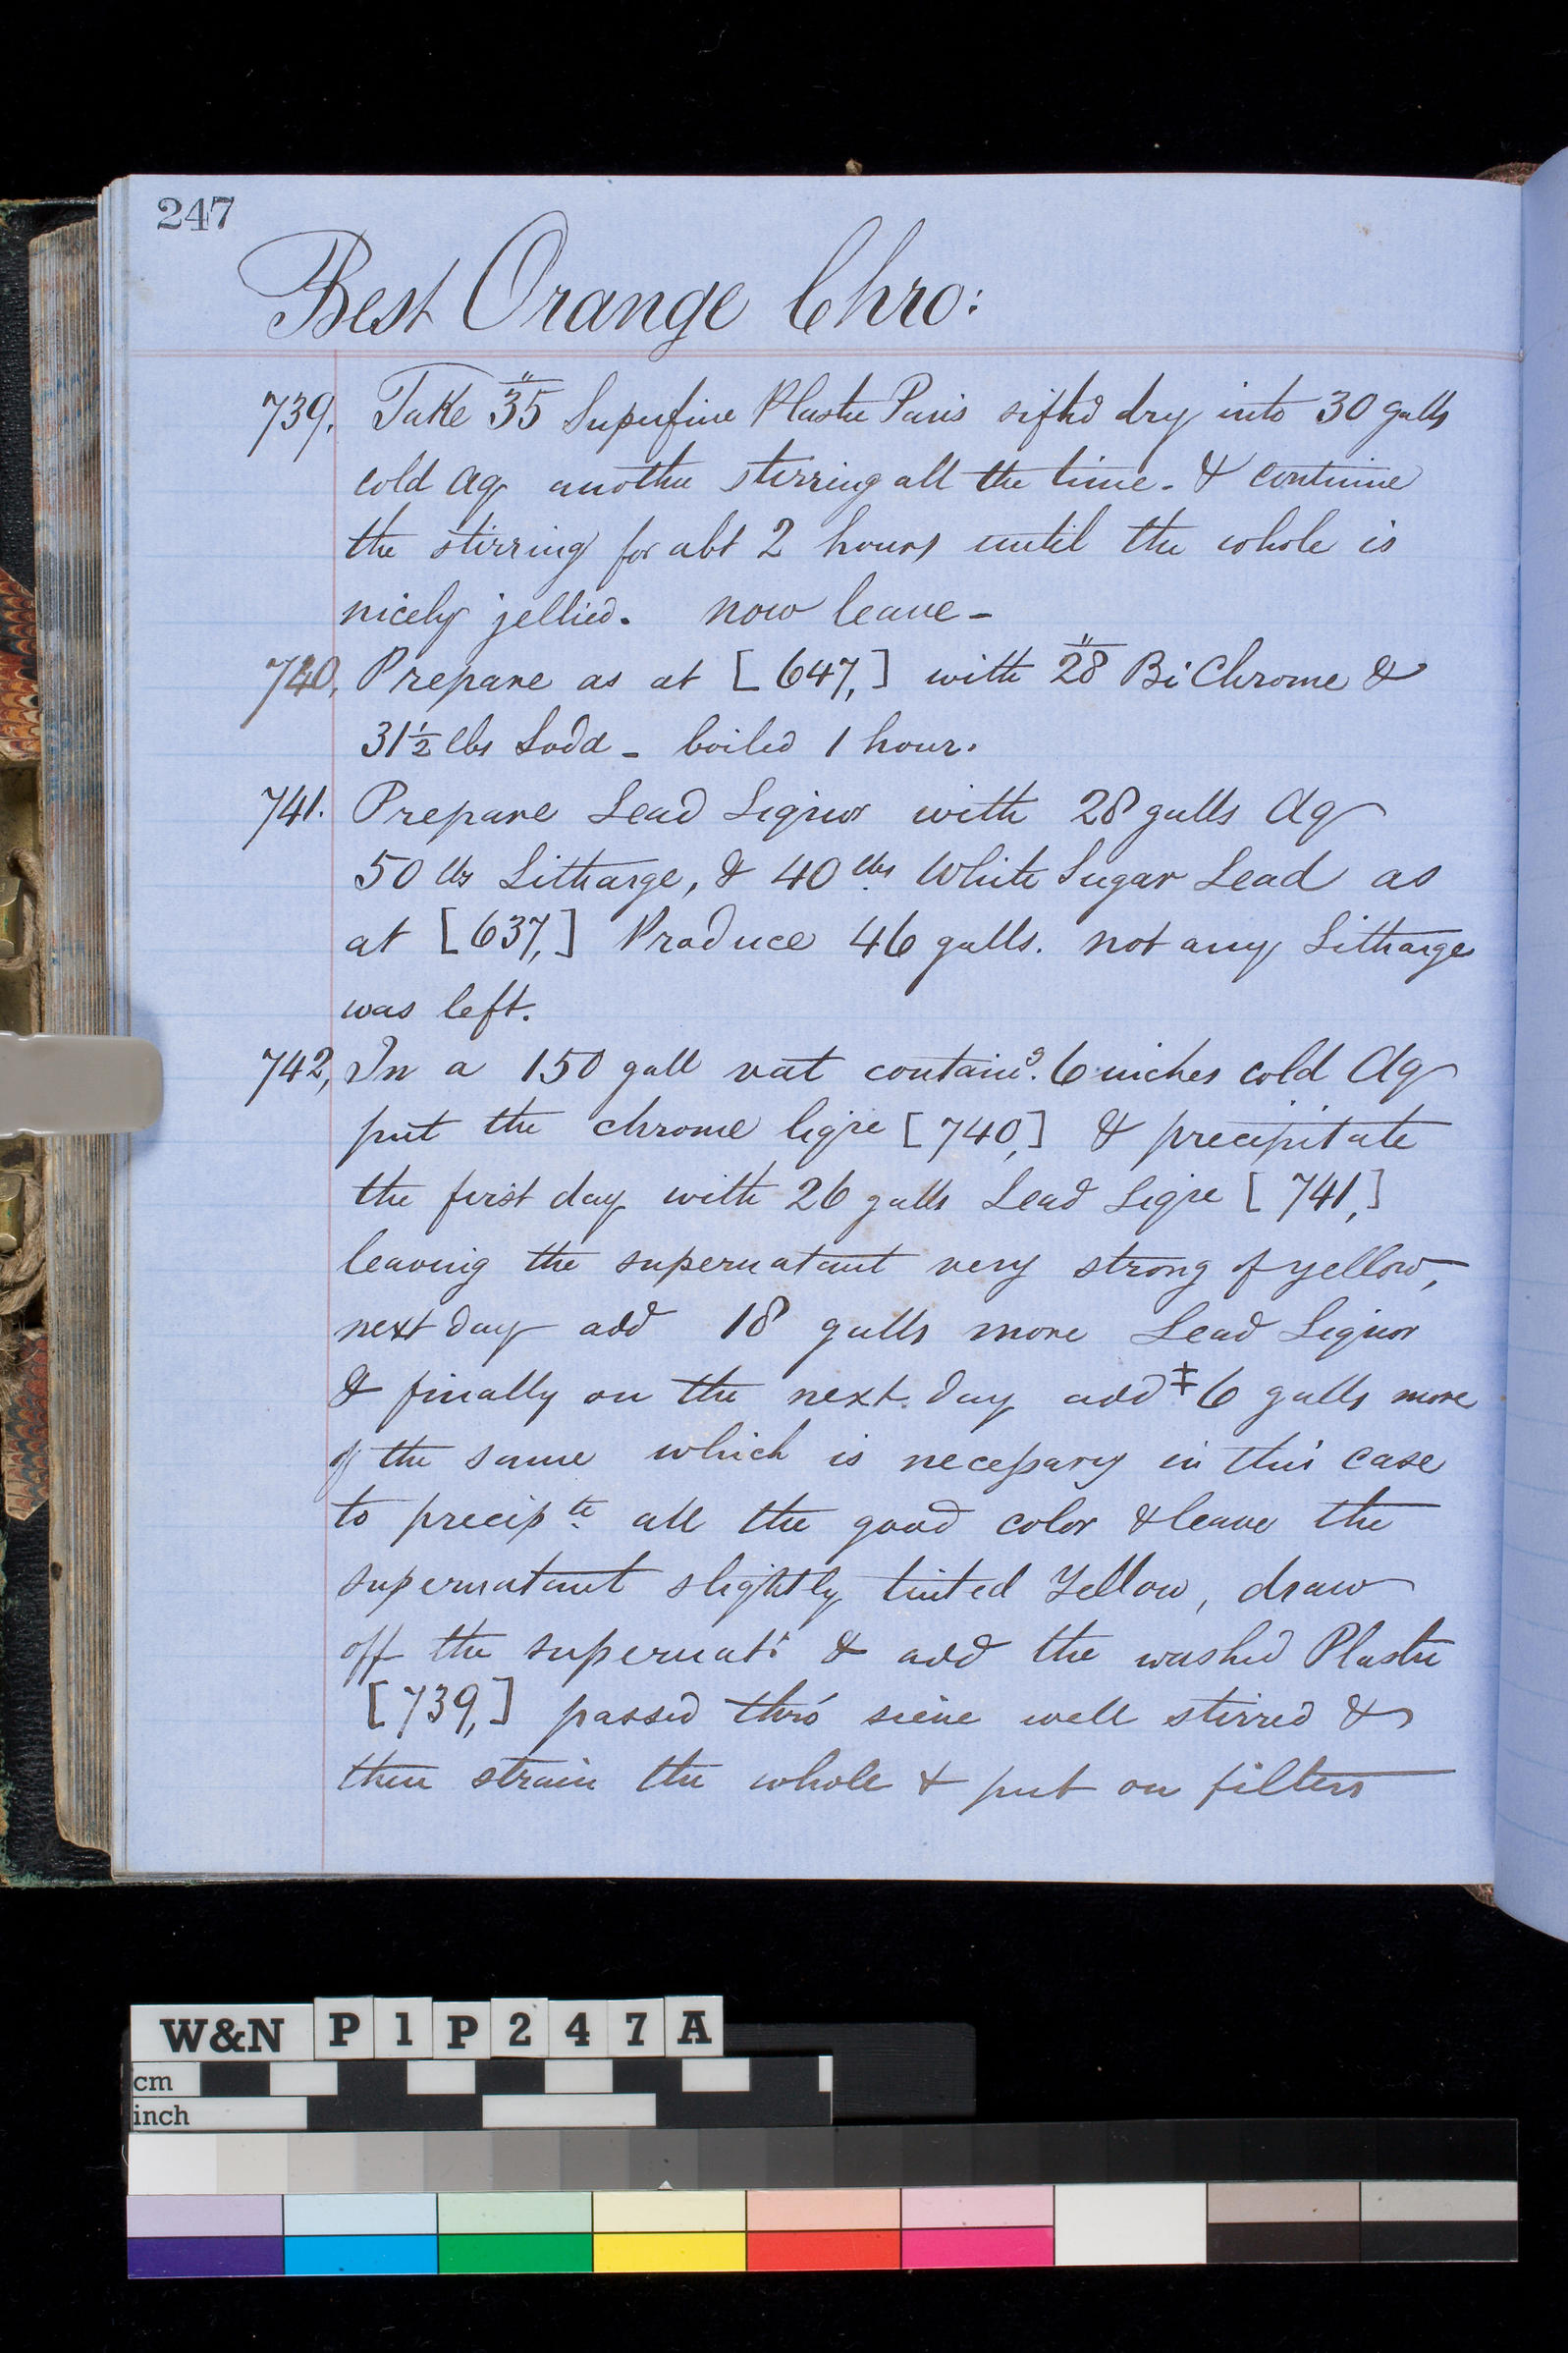 247
Best Orange Chro:
739. Take 35" Superfine Plaster Paris siftd dry into 30 galls
cold Aq another stirring all the time - & continue
the stirring for abt 2 hours until the whole is
nicely jellied. now leave -
740, Prepare as at [647,] with 28" BiChrome &
31½ lbs Soda - boiled 1 hour.
741. Prepare Lead Liquor with 28 galls Aq
50 lbs Litharge, & 40 lbs White Sugar Lead as
at [637,] Produce 46 galls. not any Litharge
was left.
742, In a 150 gall vat containg. 6 inches cold Aq
put the chrome liqre [740,] & precipitate
the first day with 26 galls Lead Liqre [741,]
leaving the supernatant very strong of yellow,
next day add 18 galls more Lead Liquor
& finally on the next day add ‡ 6 galls more
of the same which is necessary in this case
to precipte all the good color & leave the
supernatant slightly tinted Yellow, draw
off the supernatt & add the washed Plaster
[739,] passed thro' sieve well stirred &
then strain the whole & put on filters
W&N P1P247A
cm
inch